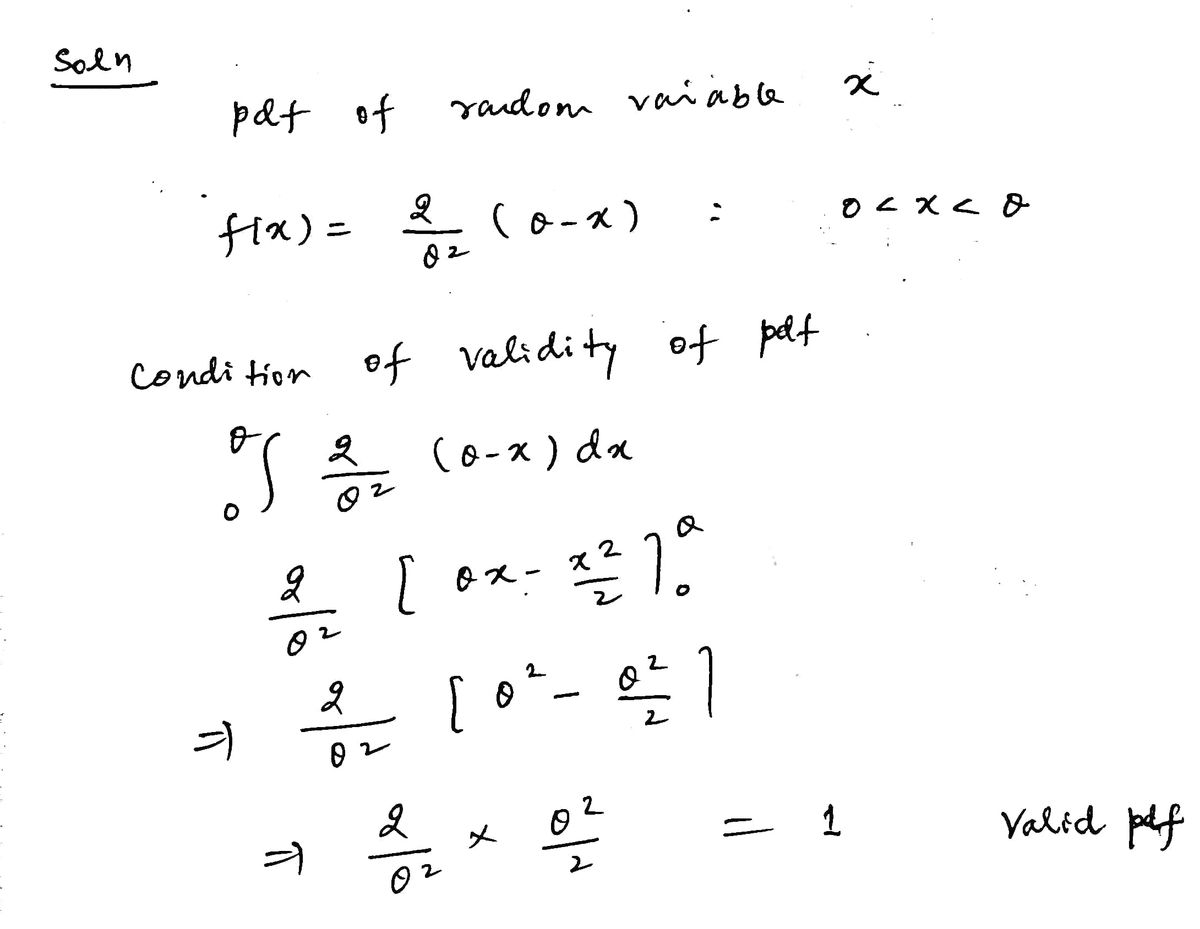 Soln
pdf of random variable x
f(x) = 2/θ² (θ-x) : 0 < x < θ
Condition of validity of pdf
₀∫^θ 2/θ² (θ-x) dx
2/θ² [ θx - x²/2 ]₀^θ
⇒ 2/θ² [ θ² - θ²/2 ]
⇒ 2/θ² × θ²/2 = 1 Valid pdf